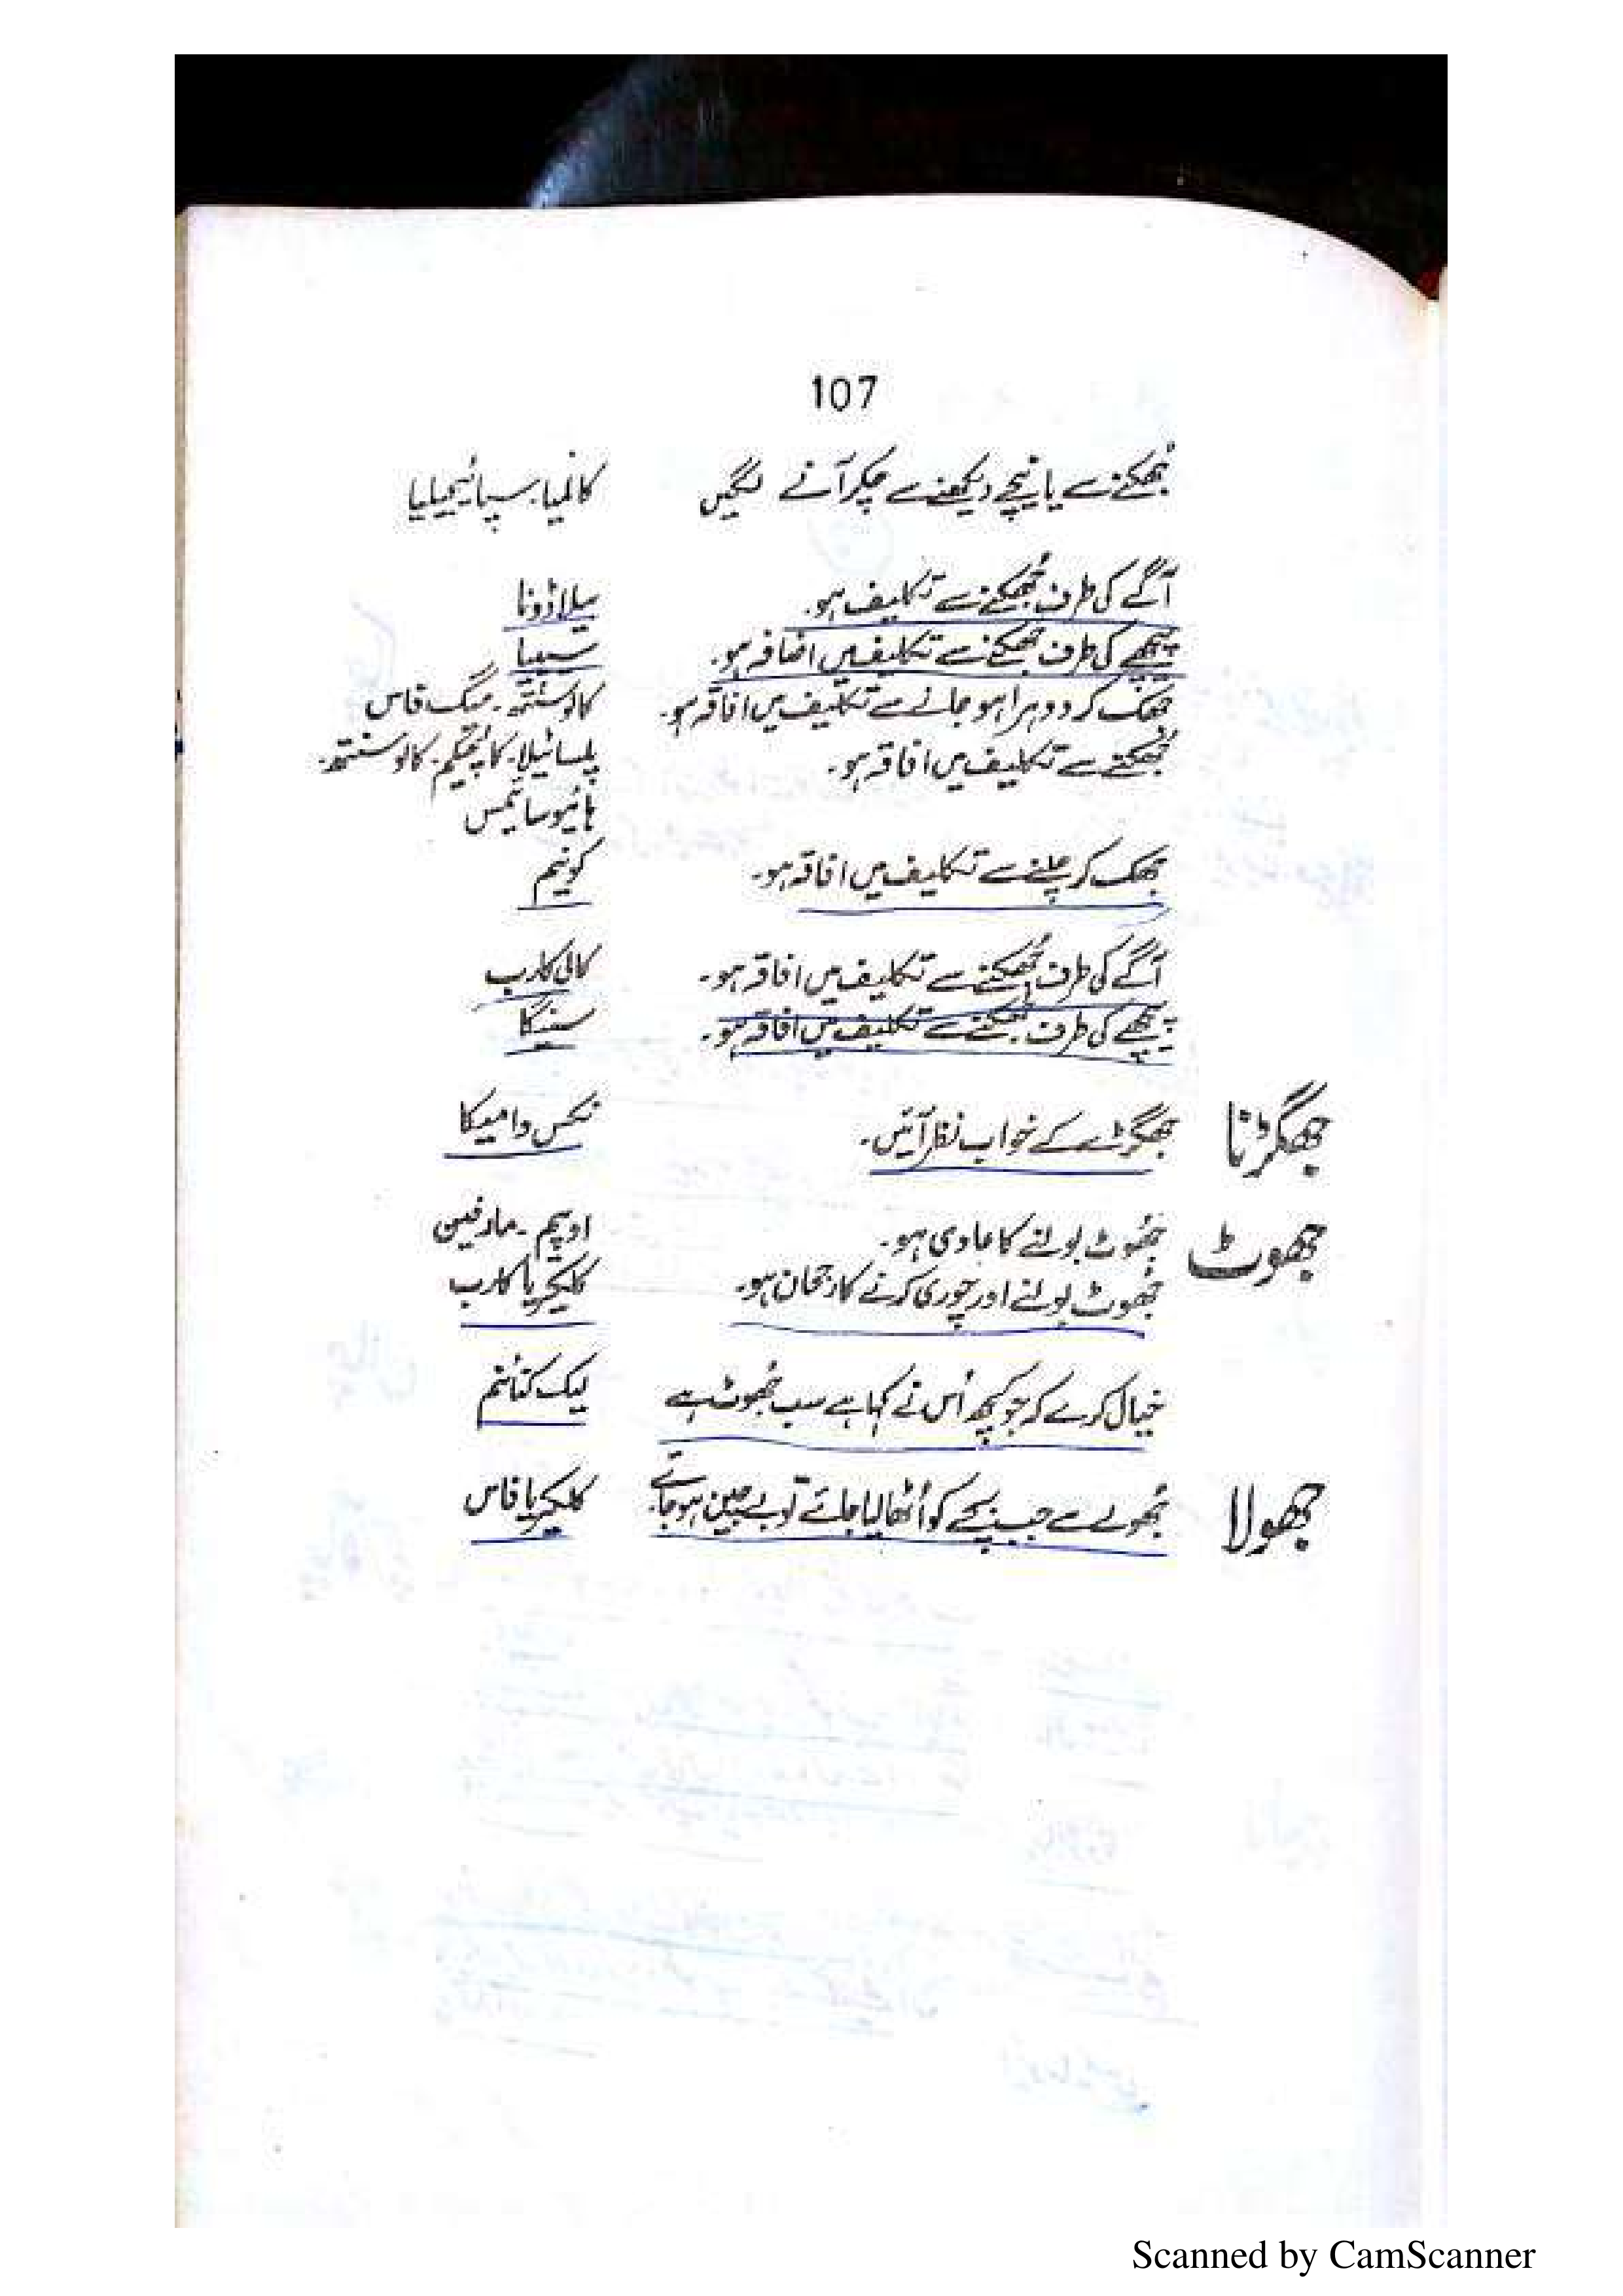 107
جھکنے سے یا نیچے دیکھنے سے چکر آنے لگیں کالمیا۔ سپائیجیلیا
آگے کی طرف جُھکنے سے تکلیف ہو۔ بیلاڈونا
پیچھے کی طرف جھکنے سے تکلیف میں اضافہ ہو۔ سیپیا
جھک کر دوہرا ہو جانے سے تکلیف میں افاقہ ہو۔ کالوسنتھ۔ میگ فاس
جُھکنے سے تکلیف میں افاقہ ہو۔ پلساٹیلا۔ کالچیکم۔ کالوسنتھ۔
ہائیوسائمس
جھک کر چلنے سے تکلیف میں افاقہ ہو۔ کونیم
آگے کی طرف جُھکنے سے تکلیف میں افاقہ ہو۔ کالی کارب
پیچھے کی طرف جھکنے سے تکلیف میں افاقہ ہو۔ سینیگا
جھگڑنا جھگڑے کے خواب نظر آئیں۔ نکس وامیکا
جھوٹ جُھوٹ بولنے کا عادی ہو۔ اوپیم۔ مارفین
جُھوٹ بولنے اور چوری کرنے کا رجحان ہو۔ کلیکیریا کارب
خیال کرے کہ جو کچھ اُس نے کہا ہے سب جُھوٹ ہے لیک کنائنم
جھولا جُھولے سے جب بچے کو اُٹھا لیا جائے تو بے چین ہو جائے۔ کلیکیریا فاس
Scanned by CamScanner